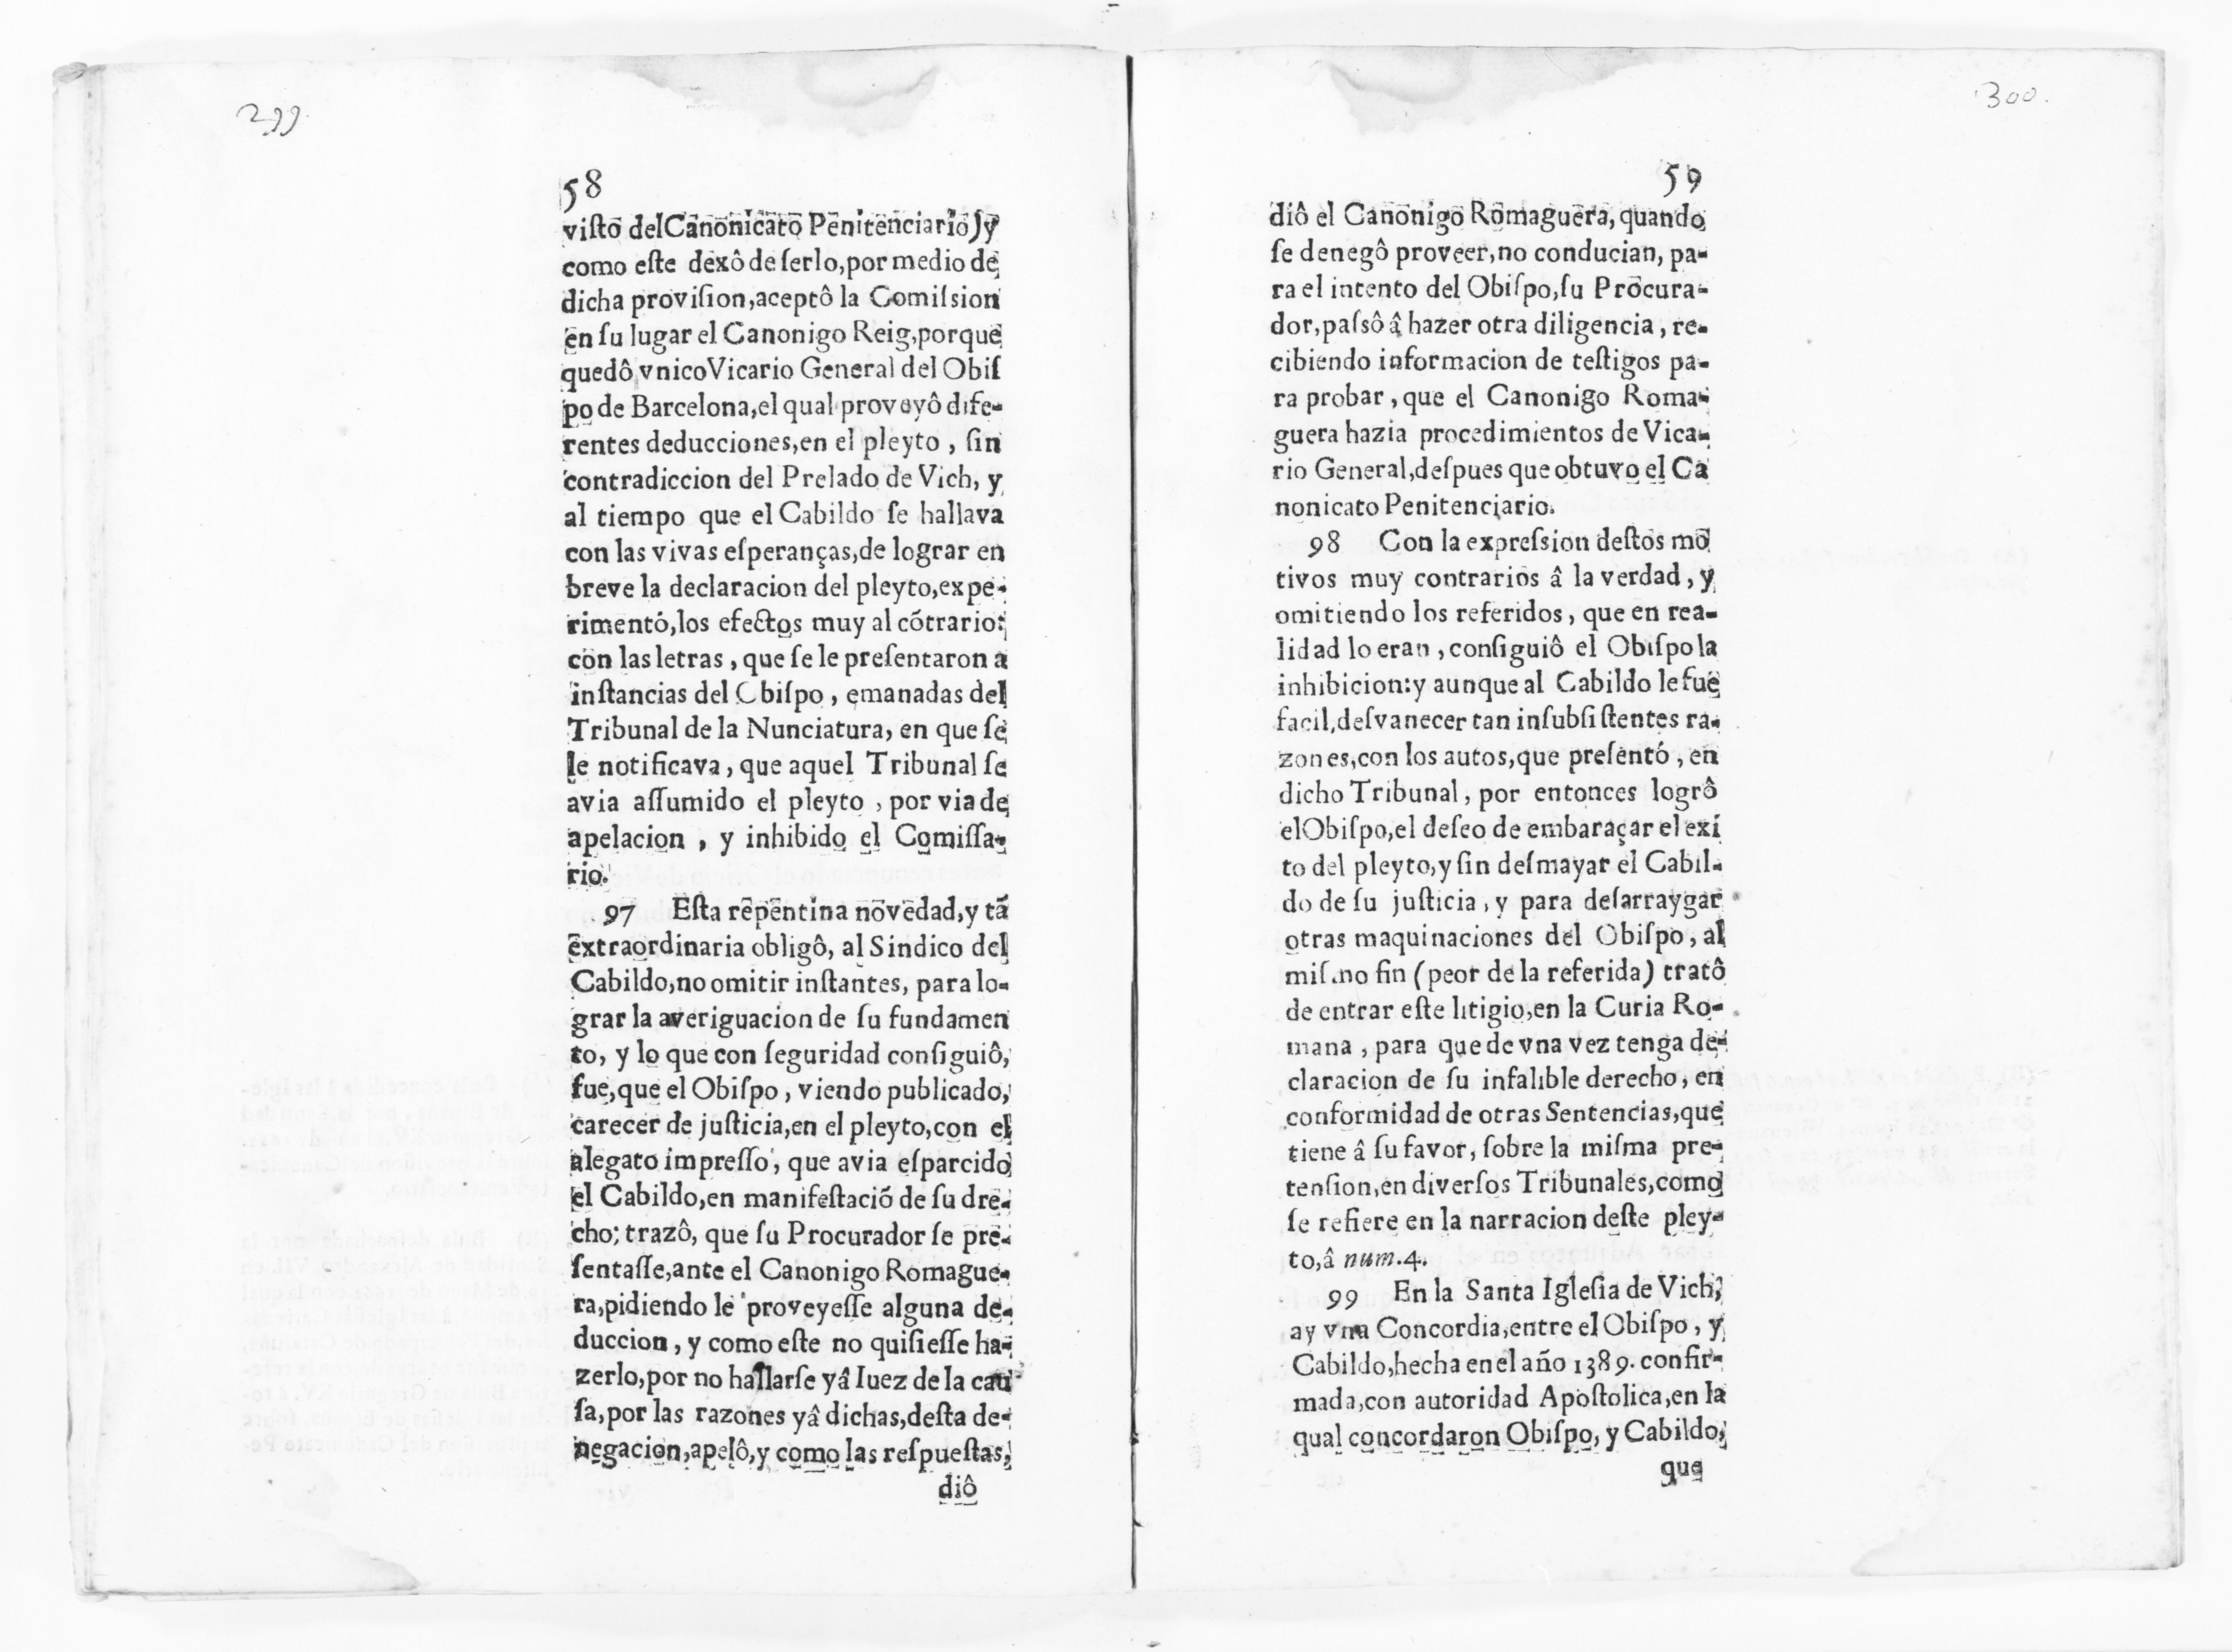 299.
58
visto del Canonicato Penitenciario) y
como este dexô de serlo, por medio de
dicha provision, aceptô la Comission
en su lugar el Canonigo Reig, porque
quedô vnico Vicario General del Obis
po de Barcelona, el qual proveyô dife-
rentes deducciones, en el pleyto, sin
contradiccion del Prelado de Vich, y
al tiempo que el Cabildo se hallava
con las vivas esperanças, de lograr en
breve la declaracion del pleyto, expe-
rimentó, los efectos muy al cõtrario:
con las letras, que se le presentaron a
instancias del Obispo, emanadas del
Tribunal de la Nunciatura, en que se
le notificava, que aquel Tribunal se
avia assumido el pleyto, por via de
apelacion, y inhibido el Comissa-
rio.
97 Esta repentina novedad, y tã
extraordinaria obligô, al Sindico del
Cabildo, no omitir instantes, para lo-
grar la averiguacion de su fundamen
to, y lo que con seguridad consiguiô,
fue, que el Obispo, viendo publicado,
carecer de justicia, en el pleyto, con el
alegato impresso, que avia esparcido
el Cabildo, en manifestaciõ de su dre-
cho; trazô, que su Procurador se pre-
sentasse, ante el Canonigo Romague-
ra, pidiendo le proveyesse alguna de-
duccion, y como este no quisiesse ha-
zerlo, por no hallarse yâ Iuez de la cau
sa, por las razones yâ dichas, desta de-
negacion, apelô, y como las respuestas,
diô
300.
59
diô el Canonigo Romaguera, quando
se denegô proveer, no conducian, pa-
ra el intento del Obispo, su Procura-
dor, passô â hazer otra diligencia, re-
cibiendo informacion de testigos pa-
ra probar, que el Canonigo Roma-
guera hazia procedimientos de Vica-
rio General, despues que obtuvo el Ca
nonicato Penitenciario.
98 Con la expression destos mo
tivos muy contrarios â la verdad, y
omitiendo los referidos, que en rea-
lidad lo eran, consiguiô el Obispo la
inhibicion: y aunque al Cabildo le fue
facil, desvanecer tan insubsistentes ra-
zones, con los autos, que presentó, en
dicho Tribunal, por entonces logrô
el Obispo, el deseo de embaraçar el exi
to del pleyto, y sin desmayar el Cabil-
do de su justicia, y para desarraygar
otras maquinaciones del Obispo, al
mismo fin (peor de la referida) tratô
de entrar este litigio, en la Curia Ro-
mana, para que de vna vez tenga de-
claracion de su infalible derecho, en
conformidad de otras Sentencias, que
tiene â su favor, sobre la misma pre-
tension, en diversos Tribunales, como
se refiere en la narracion deste pley-
to, â num. 4.
99 En la Santa Iglesia de Vich,
ay vna Concordia, entre el Obispo, y
Cabildo, hecha en el año 1389. confir-
mada, con autoridad Apostolica, en la
qual concordaron Obispo, y Cabildo,
que